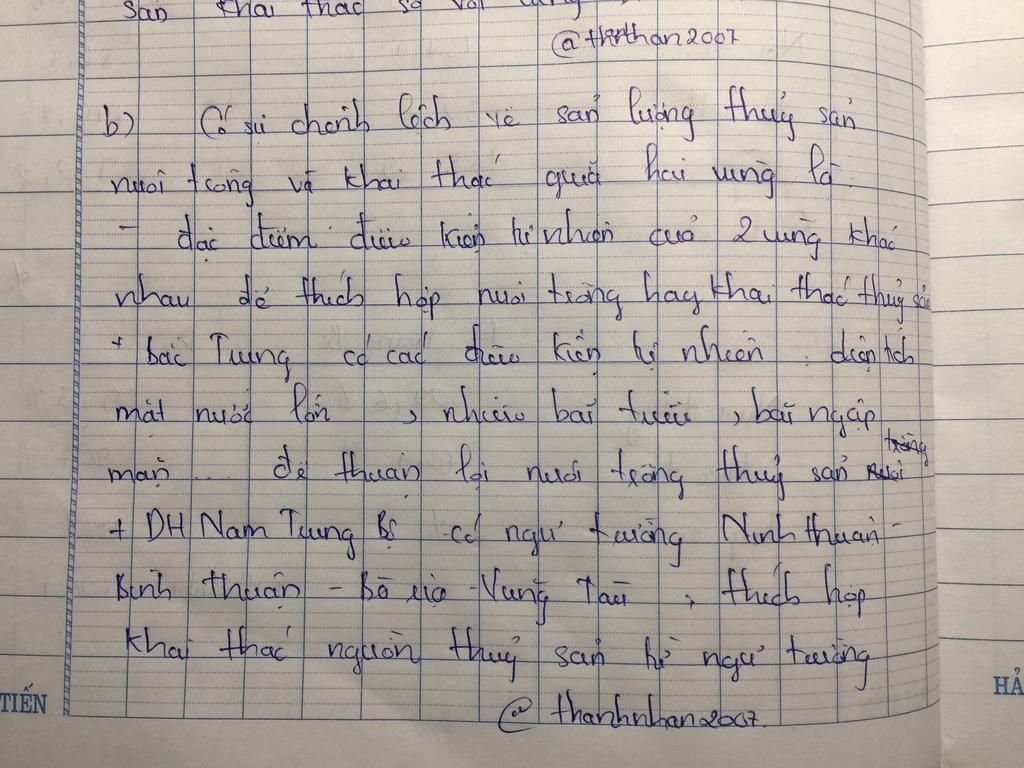 sản khai thác so với
@thnthan2007
b) Có sự chênh lệch về sản lượng thuỷ sản
nuôi trồng và khai thác giữa hai vùng là
- đặc điểm điều kiện tự nhiên của 2 vùng khác
nhau để thích hợp nuôi trồng hay khai thác thuỷ sản
+ bắc Trung có các điều kiện tự nhiên : diện tích
mặt nước lớn , nhiều bãi triều , bãi ngập
mặn .... để thuận lợi nuôi trồng thuỷ sản
trồng
+ DH Nam Trung Bộ có ngư trường Ninh thuận -
Bình thuận - Bà rịa - Vũng Tàu , thích hợp
khai thác nguồn thuỷ sản từ ngư trường
@thanhnhan2007.
TIẾN
HẢ